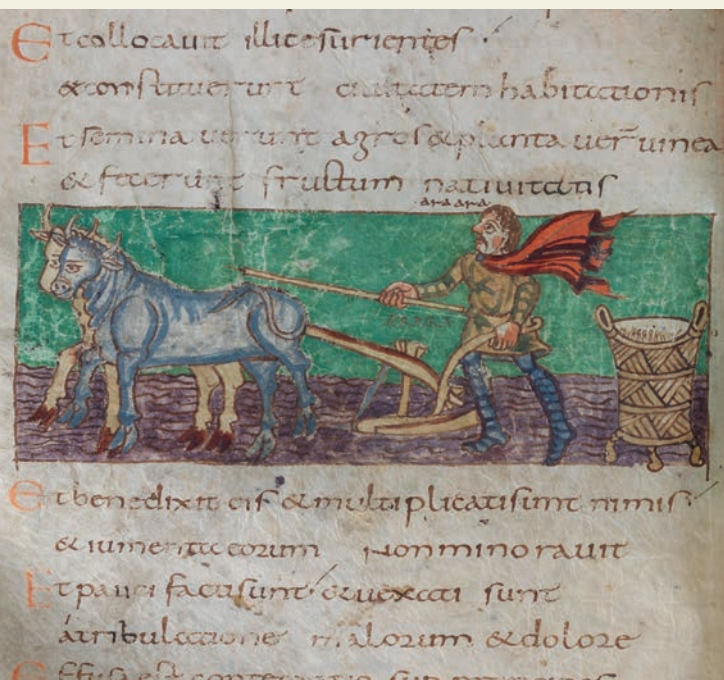 Et collocavit illic esurientes
& constituerunt civitatem habitationis
Et seminaverunt agros & plantaver̄ vinea
& fecerunt fructum nativitatis
Et benedixit eis & multiplicati sunt nimis
& iumenta eorum non minoravit
Et pauci facti sunt & vexati sunt
a tribulatione malorum & dolore